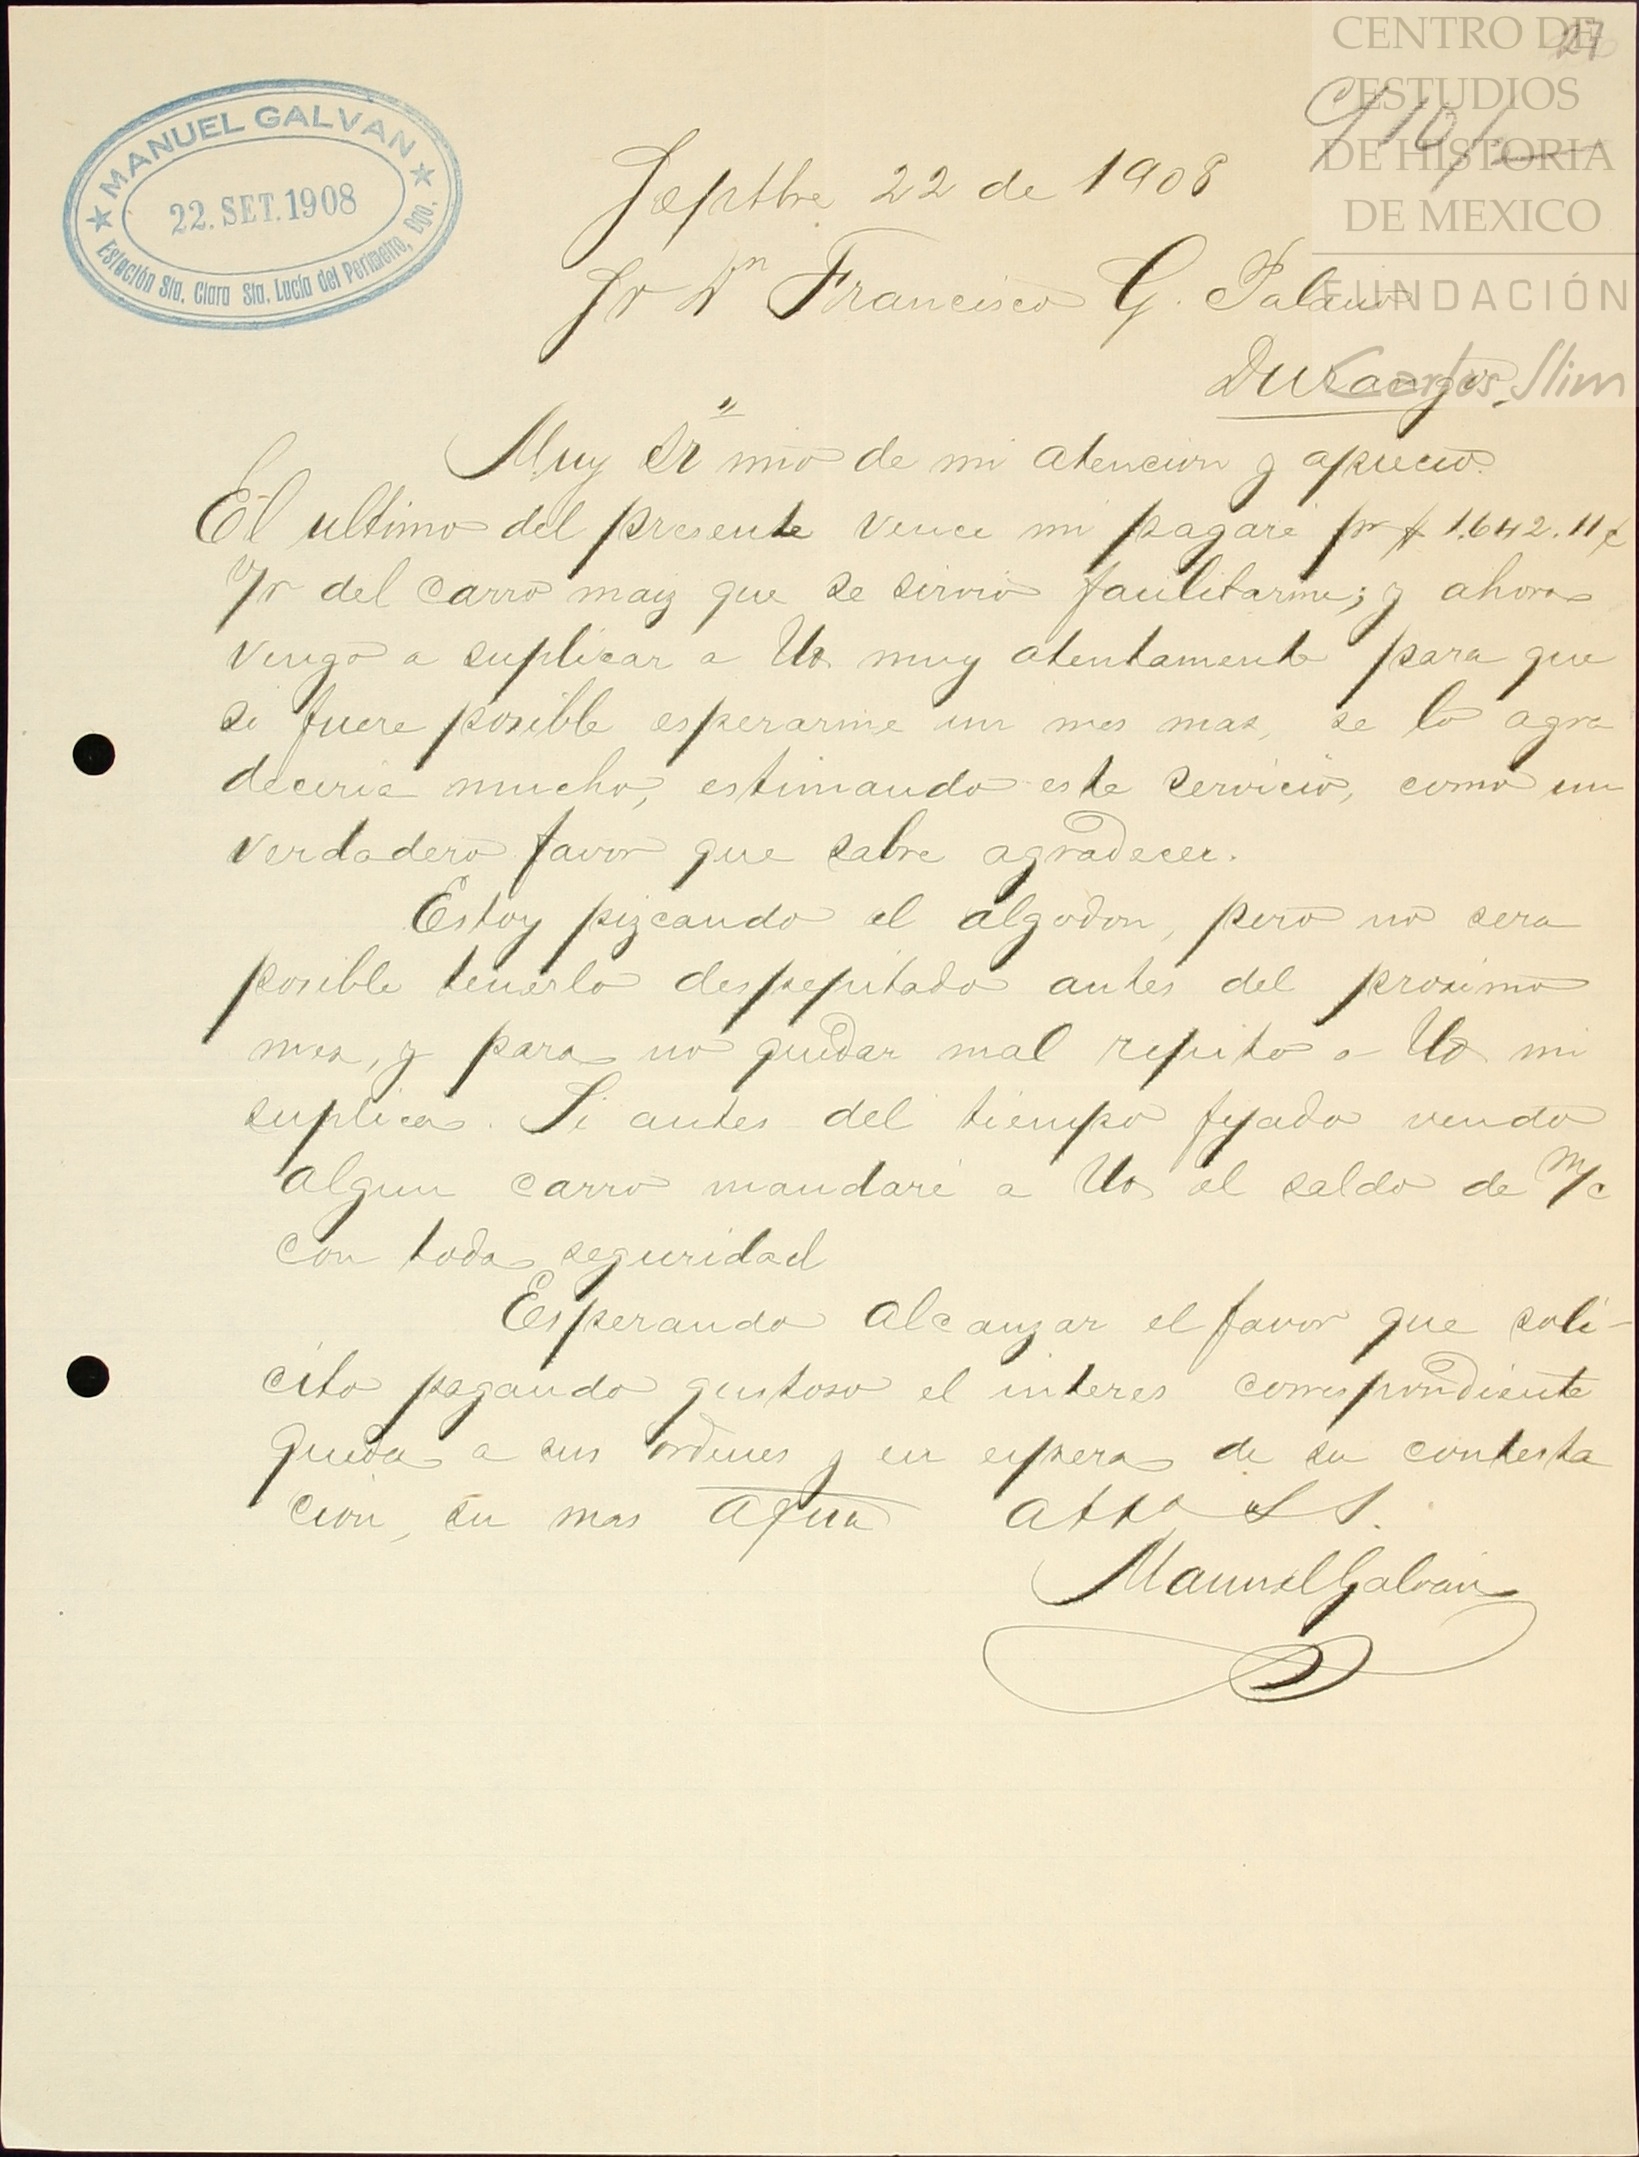 CENTRO DE
ESTUDIOS
DE HISTORIA
DE MEXICO
FUNDACIÓN
Carlos Slim
27
MANUEL GALVAN
22. SET. 1908
Estación Sta. Clara Sta. Lucía del Perimetro, Dgo.
Septbre 22 de 1908
Sr Dn Francisco G. Palacio
Durango.
Muy Sr mio de mi atencion y aprecio.
El ultimo del presente vence mi pagaré pr $ 1.642.11 ¢
Vr del carro maiz que se sirvió facilitarme; y ahora
vengo a suplicar a Ud. muy atentamente para que
si fuere posible esperarme un mes mas, se lo agra
deceria mucho, estimando este servicio, como un
verdadero favor que sabre agradecer.
Estoy pizcando el algodon, pero no sera
posible tenerlo despepitado antes del proximo
mes, y para no quedar mal repito a Ud mi
suplica. Si antes del tiempo fijado vendo
algun carro mandaré a Ud el saldo de m/c
con toda seguridad
Esperando alcanzar el favor que soli-
cito pagando gustoso el interes correspondiente
queda a sus ordenes y en espera de su contesta
cion, su mas afmo atto S S.
Manuel Galván